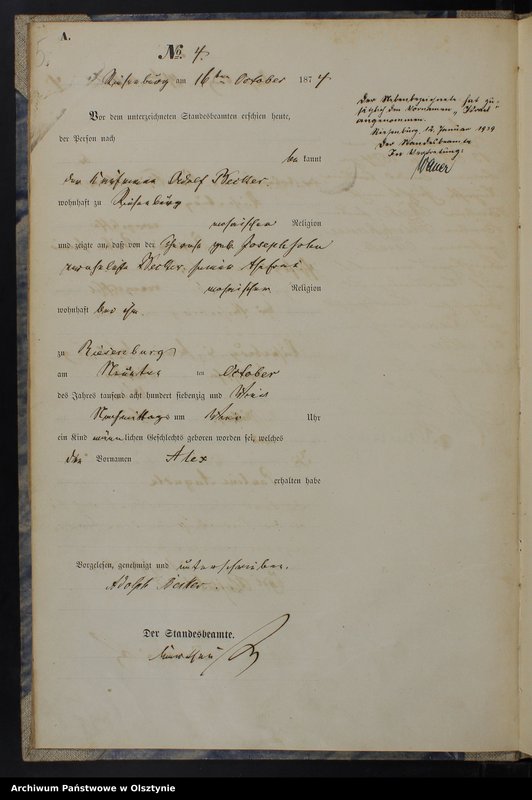 A.
5.
No. 4.
Riesenburg am 16ten October 1874
Der Nebenbezeichnete hat zu-
sätzlich den Vornamen „Israel“
angenommen.
Riesenburg, 12. Januar 1939
Der Standesbeamte
In Vertretung:
Vor dem unterzeichneten Standesbeamten erschien heute,
der Persönlichkeit nach
bekannt
der Kaufmann Adolf Becker
wohnhaft zu Riesenburg
mosaischer Religion
und zeigte an, daß von der geb. Josephsohn
verehelichte Becker seiner Ehefrau
mosaischer Religion
wohnhaft bei ihm
zu Riesenburg
am Neunten ten October
des Jahres tausend acht hundert siebenzig und vier
Nachmittags um Uhr
ein Kind männlichen Geschlechts geboren worden sei, welches
den Vornamen Alex
erhalten habe
Vorgelesen, genehmigt und unterschrieben.
Adolph Becker.
Der Standesbeamte.
Archiwum Państwowe w Olsztynie